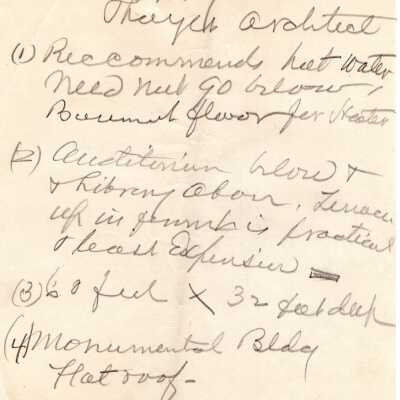 Architect
(1) Reccommends hot water
Need not go below
Basement floor for Heater
(2) Auditorium below &
& Library above. Terrace
up in front is practical
& least Expensive
(3) 60 feet X 32 feet deep
(4) Monumental Bldg
Flat roof-